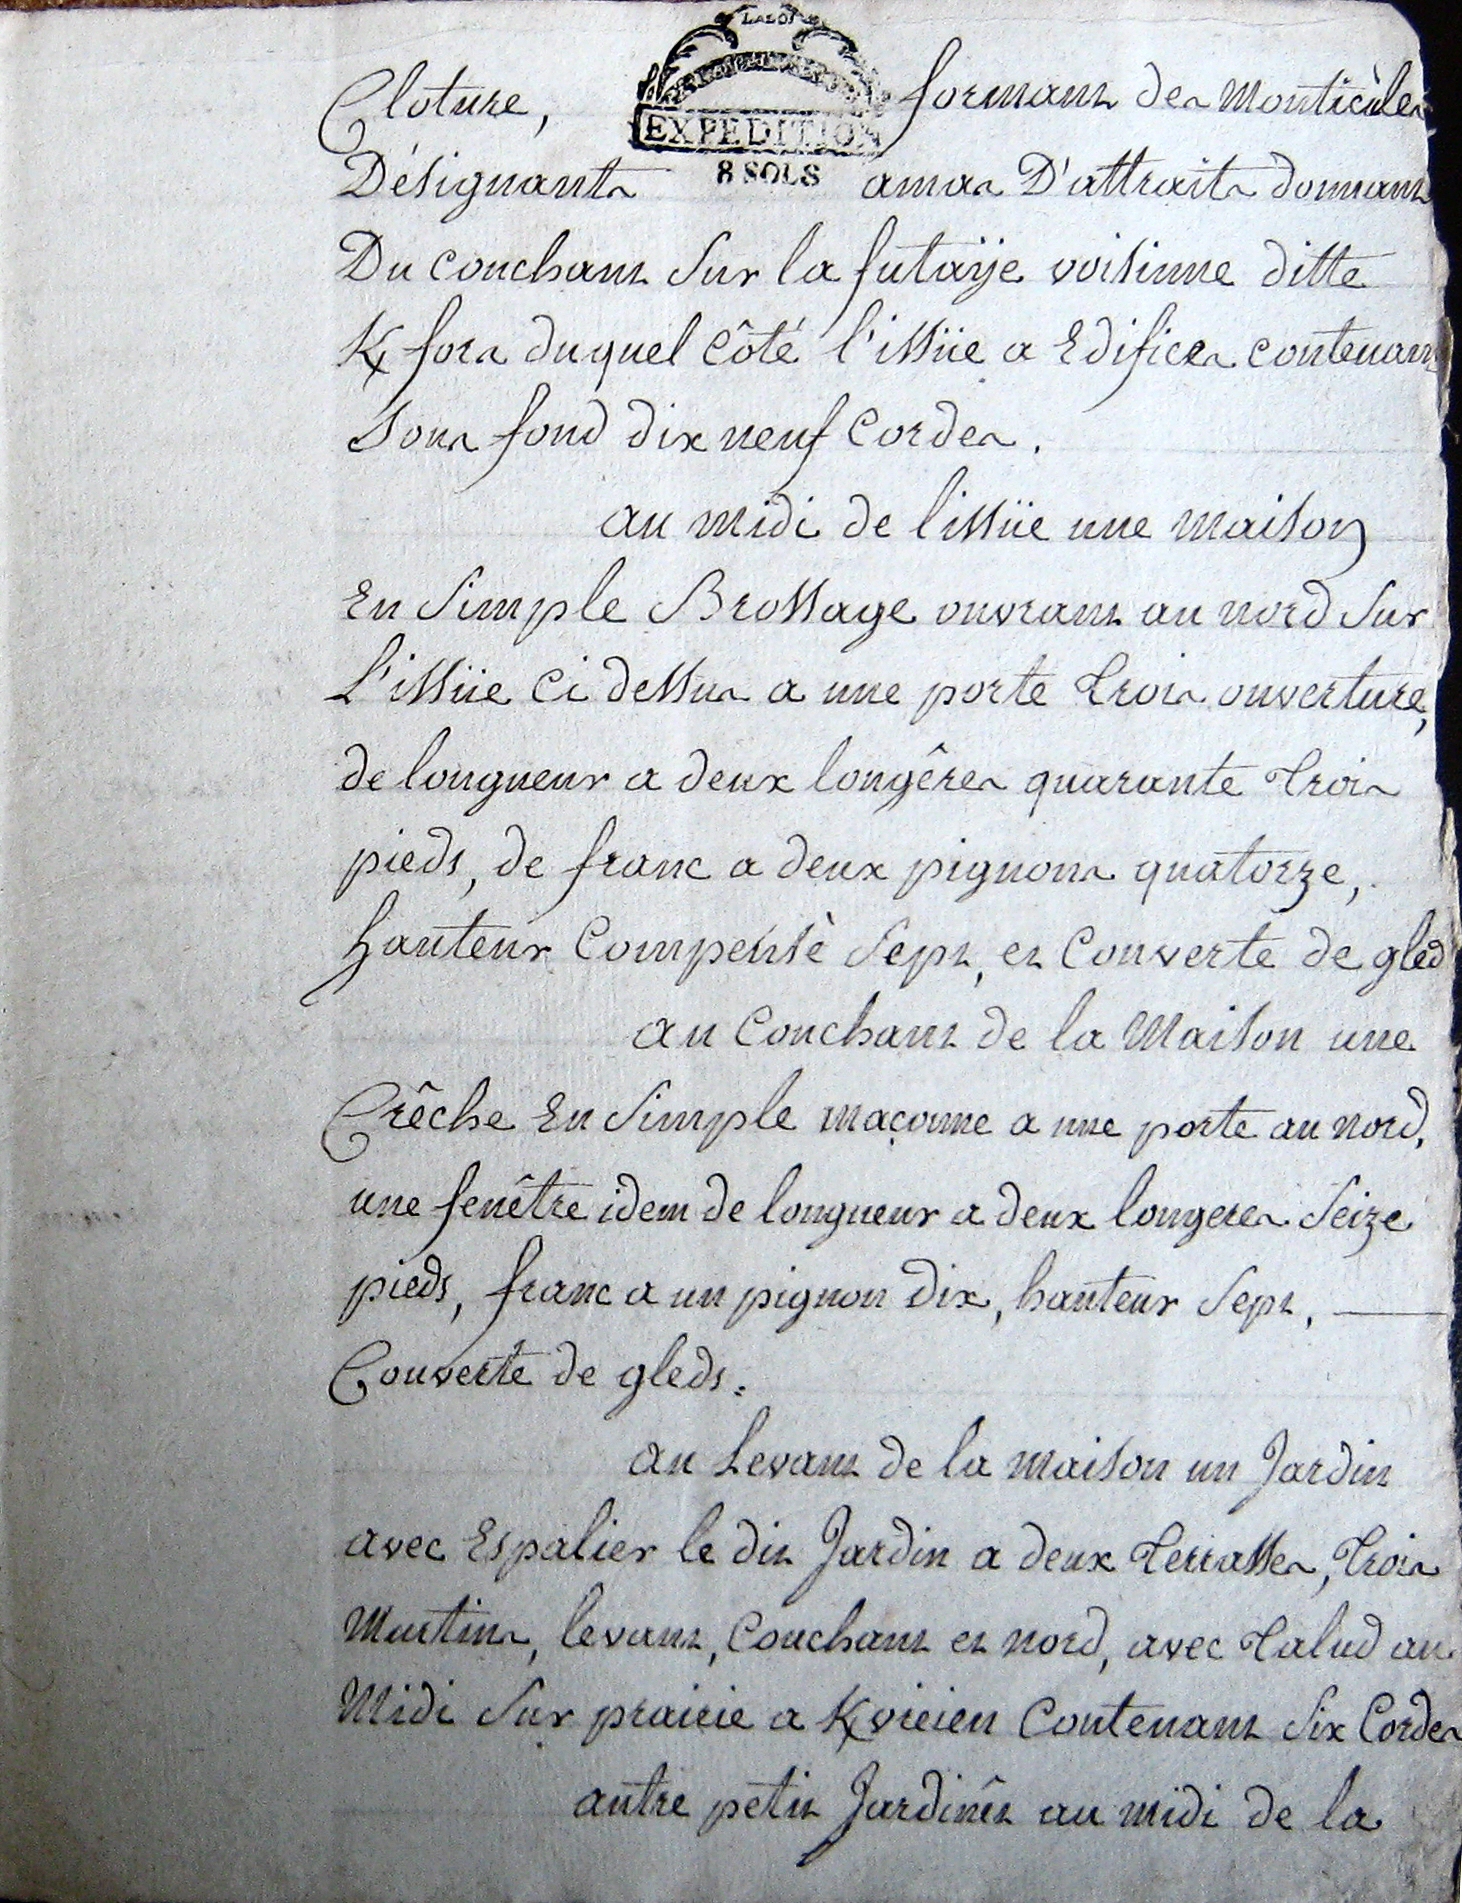 EXPEDITION
8 SOLS
Cloture, formant des Monticùles
Désignants amas D'attraits donnant
Du couchant Sur la futaÿe voisinne ditte
K/ fors duquel Côté l'issüe a Edifices contenant
Sous fond dix neuf Cordes.
au midi de l'issüe une maison
En Simple Brossage ouvrant au nord Sur
L'issüe Ci dessus a une porte trois ouverture,
de longueur a deux longêres quarante trois
pieds, de franc a deux pignons quatorze,
hauteur Compensè Sept, et Couverte de gled
au Couchant de la Maison une
Crêche En Simple maçonne a une porte au nord,
une fenêtre idem de longueur a deux longeres Seize
pieds, franc a un pignon Dix, hauteur Sept,
Couverte de gleds.
au Levant de la maison un Jardin
avec Espalier le dit Jardin a deux terrasses, trois
Martins, levant, Couchant et nord, avec talud au
Midi Sur prairie a K/vieien Contenant Six Cordes
autre petit Jardinêt au midi de la